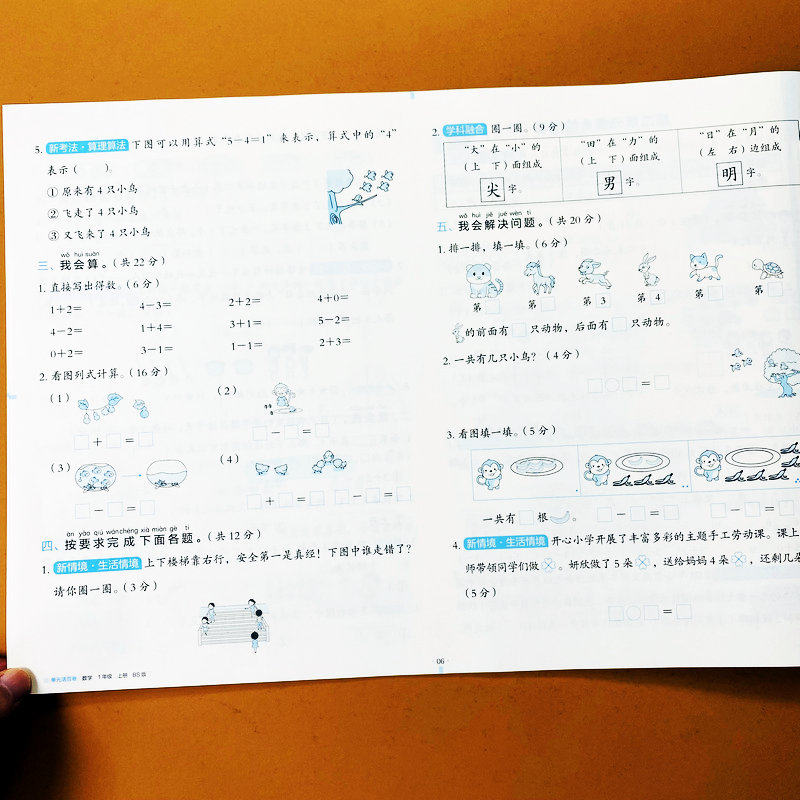 5. 新考法·算理算法 下图可以用算式“5－4＝1”来表示，算式中的“4”
表示（　　）。
① 原来有 4 只小鸟
② 飞走了 4 只小鸟
③ 又飞来了 4 只小鸟
wǒ huì suàn
三、我会算。（共 22 分）
1. 直接写出得数。（6 分）
1＋2＝ 4－3＝ 2＋2＝ 4＋0＝
4－2＝ 1＋4＝ 3＋1＝ 5－2＝
0＋2＝ 3－1＝ 1－1＝ 2＋3＝
2. 看图列式计算。（16 分）
（1） （2）
□＋□＝□ □－□＝□
（3） （4）
□－□＝□ □＋□＝□ □－□＝□
àn yāo qiú wán chéng xià miàn gè tí
四、按要求完成下面各题。（共 12 分）
1. 新情境·生活情境 上下楼梯靠右行，安全第一是真经！下图中谁走错了？
请你圈一圈。（3 分）
单元活页卷 数学 1年级 上册 BS版
2. 学科融合 圈一圈。（9 分）
“大”在“小”的 “田”在“力”的 “日”在“月”的
（上　下）面组成 （上　下）面组成 （左　右）边组成
尖 字。 男 字。 明 字。
wǒ huì jiě jué wèn tí
五、我会解决问题。（共 20 分）
1. 排一排，填一填。（6 分）
第□ 第□ 第 3 第 4 第□ 第□
的前面有□只动物，后面有□只动物。
2. 一共有几只小鸟？（4 分）
□○□＝□
3. 看图填一填。（5 分）
一共有□根。 □－□＝□ □－□＝□
4. 新情境·生活情境 开心小学开展了丰富多彩的主题手工劳动课。课上
师带领同学们做，妍欣做了 5 朵，送给妈妈 4 朵，还剩几朵
（5 分）
□○□＝□
06